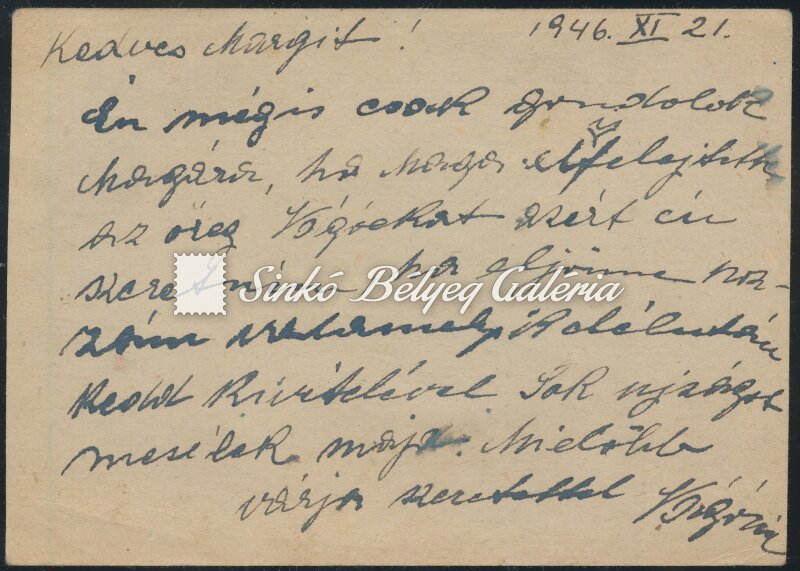 Kedves Margit! 1946. XI 21.
Én mégis csak gondolok
Magára, ha Maga elfelejtette
az öreg Bógóékat azért én
szeretném ha eljönne hoz-
zám valamelyik délután
kedd kivételével Sok ujságot
mesélek majd. Mielőbb
várja szeretettel
Sinkó Bélyeg Galéria